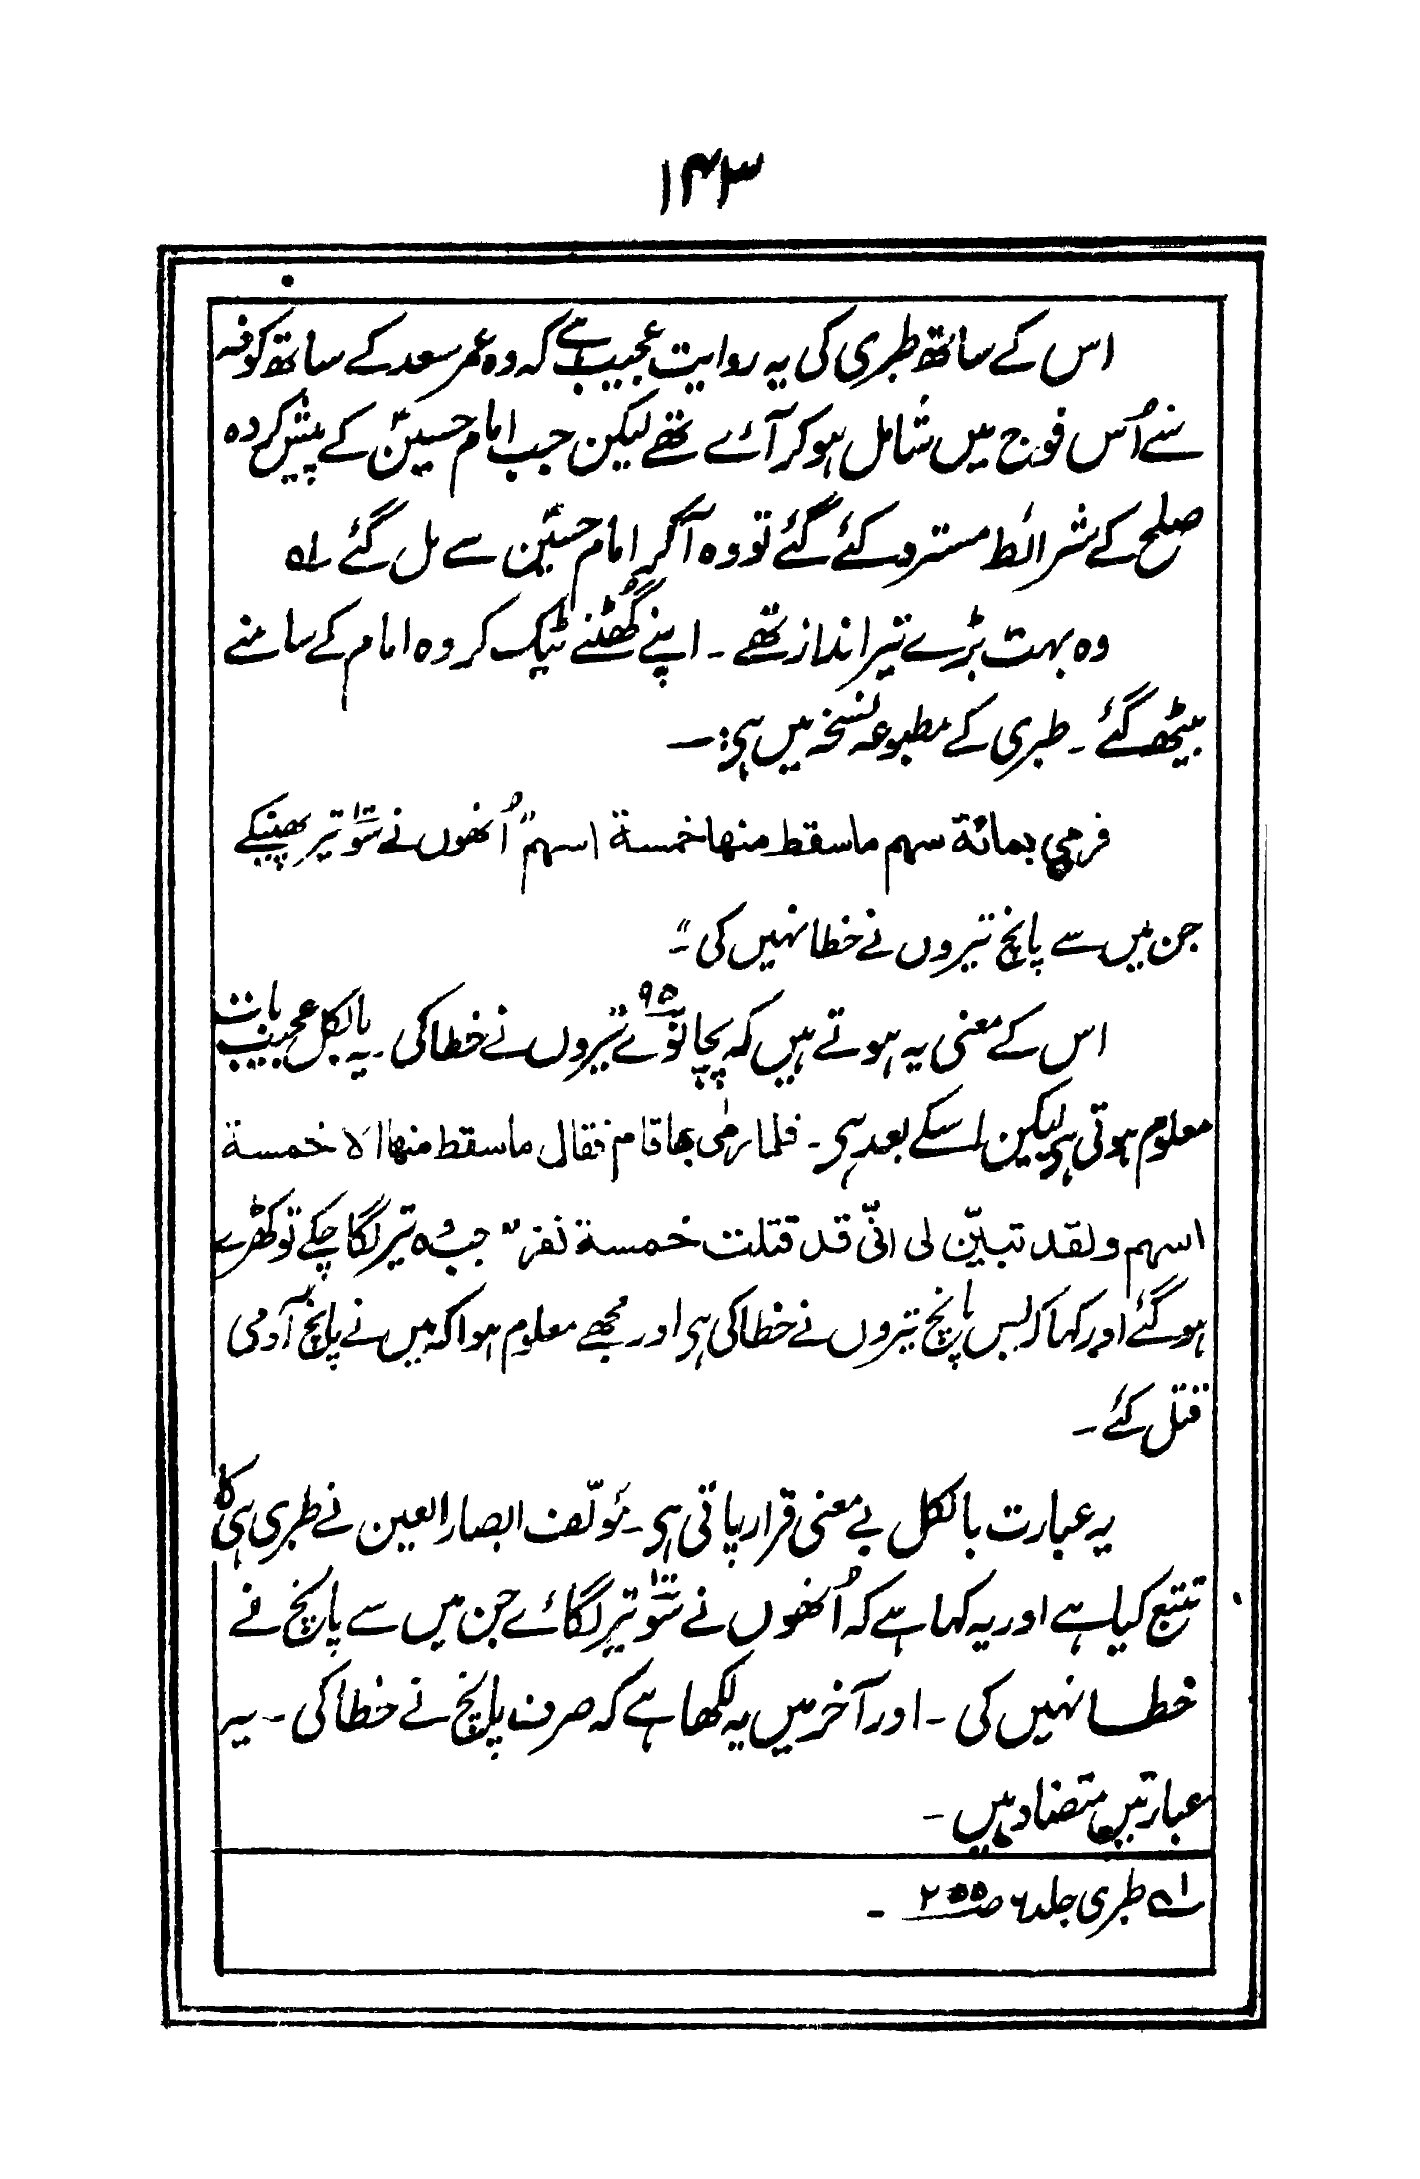 ۱۴۳
اس کے ساتھ طبری کی یہ روایت عجیب ہے کہ وہ عمر سعد کے ساتھ کوفہ
سے اُس فوج میں شامل ہو کر آئے تھے لیکن جب امام حسینؑ کے پیش کردہ
صلح کے شرائط مسترد کئے گئے تو وہ آکر امام حسینؑ سے مل گئے ؁۱
وہ بہت بڑے تیر انداز تھے ۔ اپنے گھٹنے ٹیک کر وہ امام کے سامنے
بیٹھ گئے ۔ طبری کے مطبوعہ نسخہ میں ہی:۔
فرمی بمائة سهم ماسقط منها خمسة اسهم" اُنھوں نے سَو۱۰۰ تیر پھینکے
جن میں سے پانچ تیروں نے خطا نہیں کی"۔
اس کے معنی یہ ہوتے ہیں کہ پچانوّے ۹۵ تیروں نے خطا کی ۔ یہ بالکل عجیب بات
معلوم ہوتی ہی لیکن اسکے بعد ہی ۔ فلما رمی بها قام فقال ماسقط منها الا خمسة
اسهم ولقد تبیّن لی انّی قد قتلت خمسة نفر" جب وہ تیر لگا چکے تو کھڑے
ہو گئے اور کہا کہ بس پانچ تیروں نے خطا کی ہی اور مجھے معلوم ہوا کہ میں نے پانچ آدمی
قتل کئے ۔
یہ عبارت بالکل بے معنی قرار پاتی ہی ۔ مؤلّف ابصار العین نے طبری ہی کا
تتبع کیا ہے اور یہ کہا ہے کہ اُنھوں نے سَو۱۰۰ تیر لگائے جن میں سے پانچ نے
خطا نہیں کی ۔ اور آخر میں یہ لکھا ہے کہ صرف پانچ نے خطا کی ۔ یہ
عبارتیں متضاد ہیں ۔
؁۱ طبری جلد ۶ ص۲۵۵ ۔